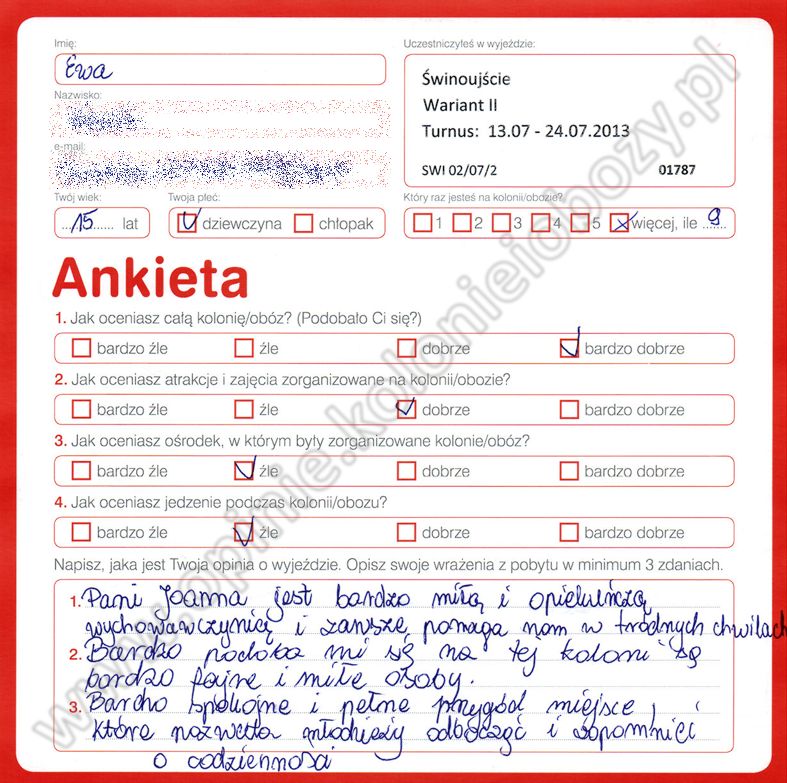 Imię:
Ewa
Uczestniczyłeś w wyjeździe:
Świnoujście
Wariant II
Turnus: 13.07 - 24.07.2013
SWI 02/07/2 01787
Nazwisko:
e-mail:
Twój wiek:
15 lat
Twoja płeć:
dziewczyna chłopak
Który raz jesteś na kolonii/obozie?
1 2 3 4 5 więcej, ile 9
Ankieta
1. Jak oceniasz całą kolonię/obóz? (Podobało Ci się?)
bardzo źle źle dobrze bardzo dobrze
2. Jak oceniasz atrakcje i zajęcia zorganizowane na kolonii/obozie?
bardzo źle źle dobrze bardzo dobrze
3. Jak oceniasz ośrodek, w którym były zorganizowane kolonie/obóz?
bardzo źle źle dobrze bardzo dobrze
4. Jak oceniasz jedzenie podczas kolonii/obozu?
bardzo źle źle dobrze bardzo dobrze
Napisz, jaka jest Twoja opinia o wyjeździe. Opisz swoje wrażenia z pobytu w minimum 3 zdaniach.
1. Pani Joanna jest bardzo miłą i opiekuńczą
wychowawczynią i zawsze pomaga nam w trudnych chwilach
2. Bardzo podoba mi się na tej koloni są
bardzo fajne i miłe osoby.
3. Bardzo spokojne i pełne przygód miejsce,
które pozwala młodzieży odbocząć i zapomnieć
o codzienności
www.opinie.kolonieiobozy.pl